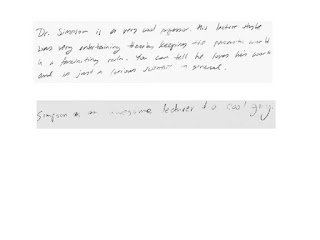 Dr. Simpson is a very good professor. His lecture style
was very entertaining keeping the parasitic world
in a fascinating realm. You can tell he loves his work
and is just a in general.
Simpson is an awesome lecturer & a cool guy.